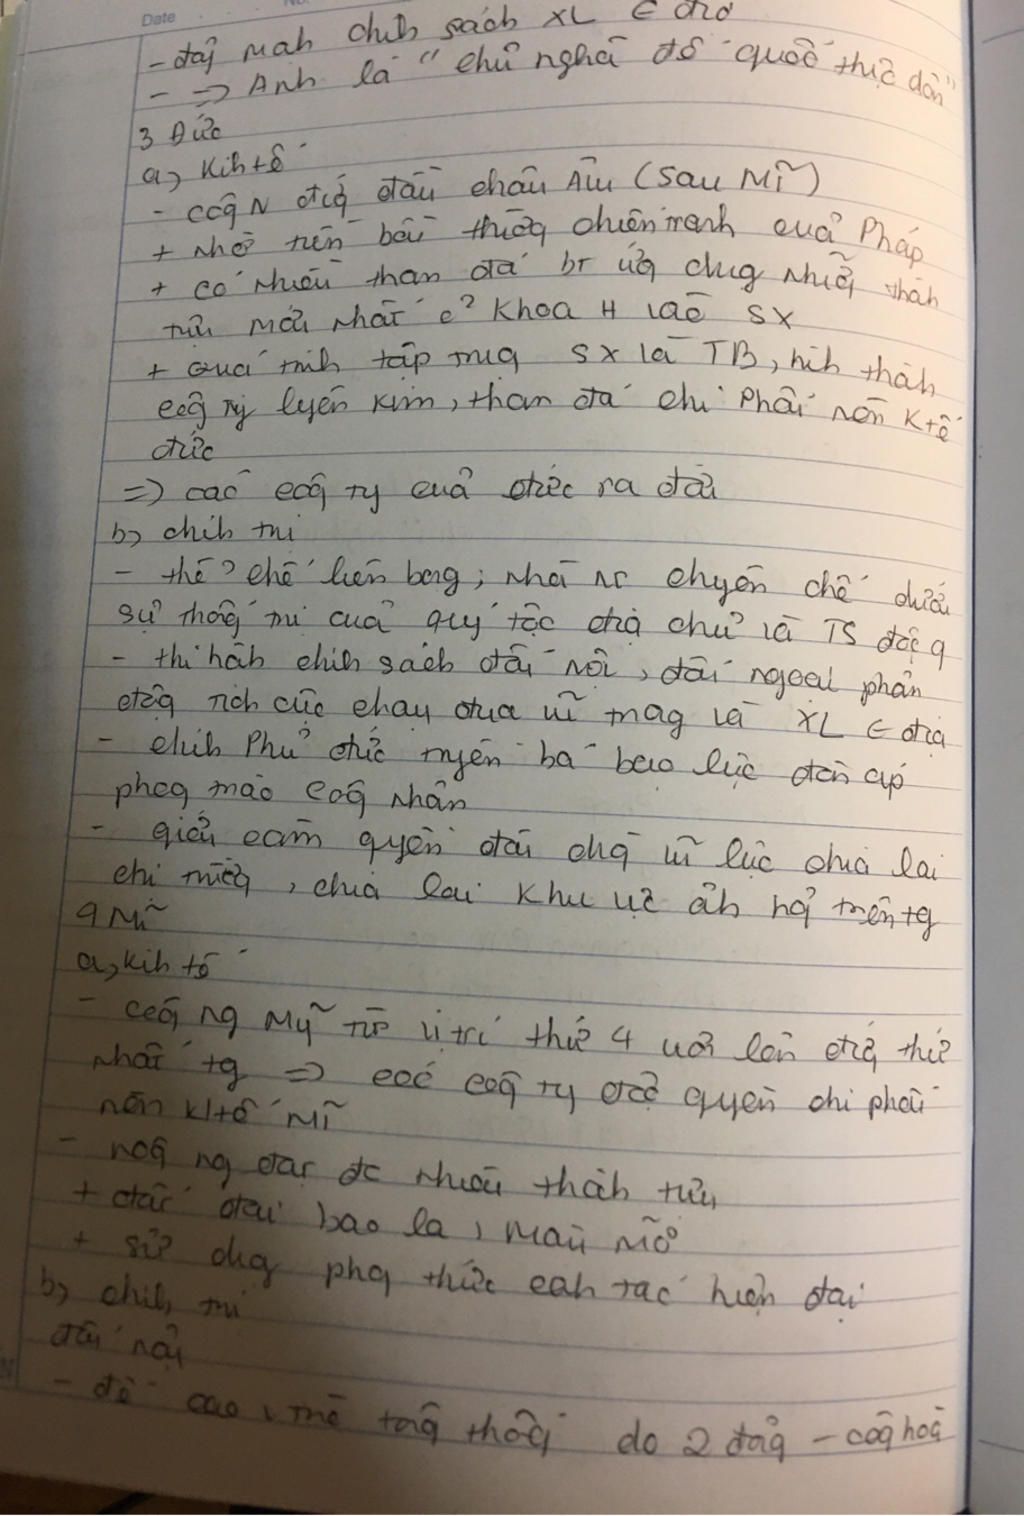 Date No.
- đẩy mah chíh sách XL ∈ địa
- => Anh là "chủ nghĩa đế quốc thực dân"
3 Đức
a, Kih tế
- côg N đứg đầu châu Âu (sau Mĩ)
+ nhờ tiền bồi thườg chiến tranh của Pháp
+ có nhiều than đá br ứg dụg nhữg thàh
tựu mới nhất c² khoa H vào SX
+ Quá trìh tập trug SX và TB, hìh thàh
côg ty luyện kim, than đá chi phối nền Ktế
đức
=> các côg ty của đức ra đời
b, chíh trị
- thể chế liên bag; nhà nc chuyên chế dưới
sự thốg trị của quý tộc địa chủ và TS độc q
- thi hàh chíh sách đối nội, đối ngoại phản
độg tích cực chạy đua vũ trag và XL ∈ địa
- chíh Phủ đức truyền bá bạo lực đàn áp
phog trào côg nhân
- giới cầm quyền đòi dùg vũ lực chia lại
thị trườg, chia lại khu vực ảh hg trên tg
4 Mĩ
a, kih tế
- côg ng Mỹ từ vị trí thứ 4 vơi lên đứg thứ
nhất tg => các côg ty độc quyền chi phối
nền Ktế Mĩ
- nôg ng đạt đc nhiều thàh tựu
+ đất đai bao la, màu mỡ
+ sử dụg phg thức cah tác hiện đại
b, chíh trị
đối nội
- đề cao vtrò tổg thốg do 2 đảg - cộg hoà